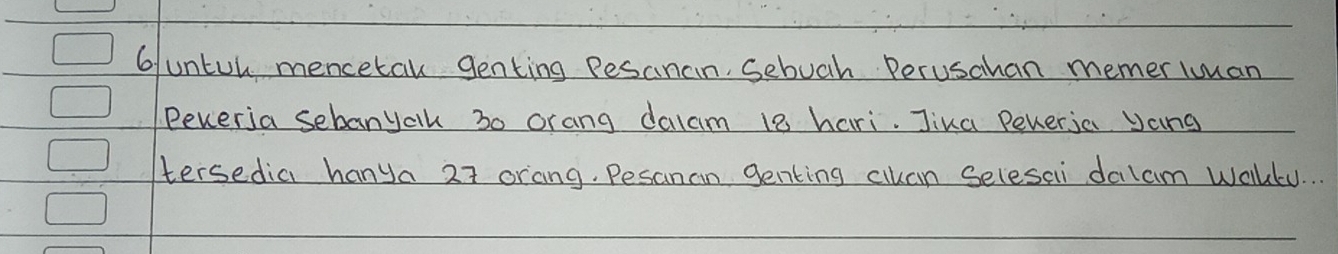 6 untuk mencetak genting Pesanan. Sebuah Perusahan memerlukan
Pekerja Sebanyak 30 orang dalam 18 hari. Jika Pekerja yang
tersedia hanya 27 orang. Pesanan genting akan Selesai dalam Waktu...